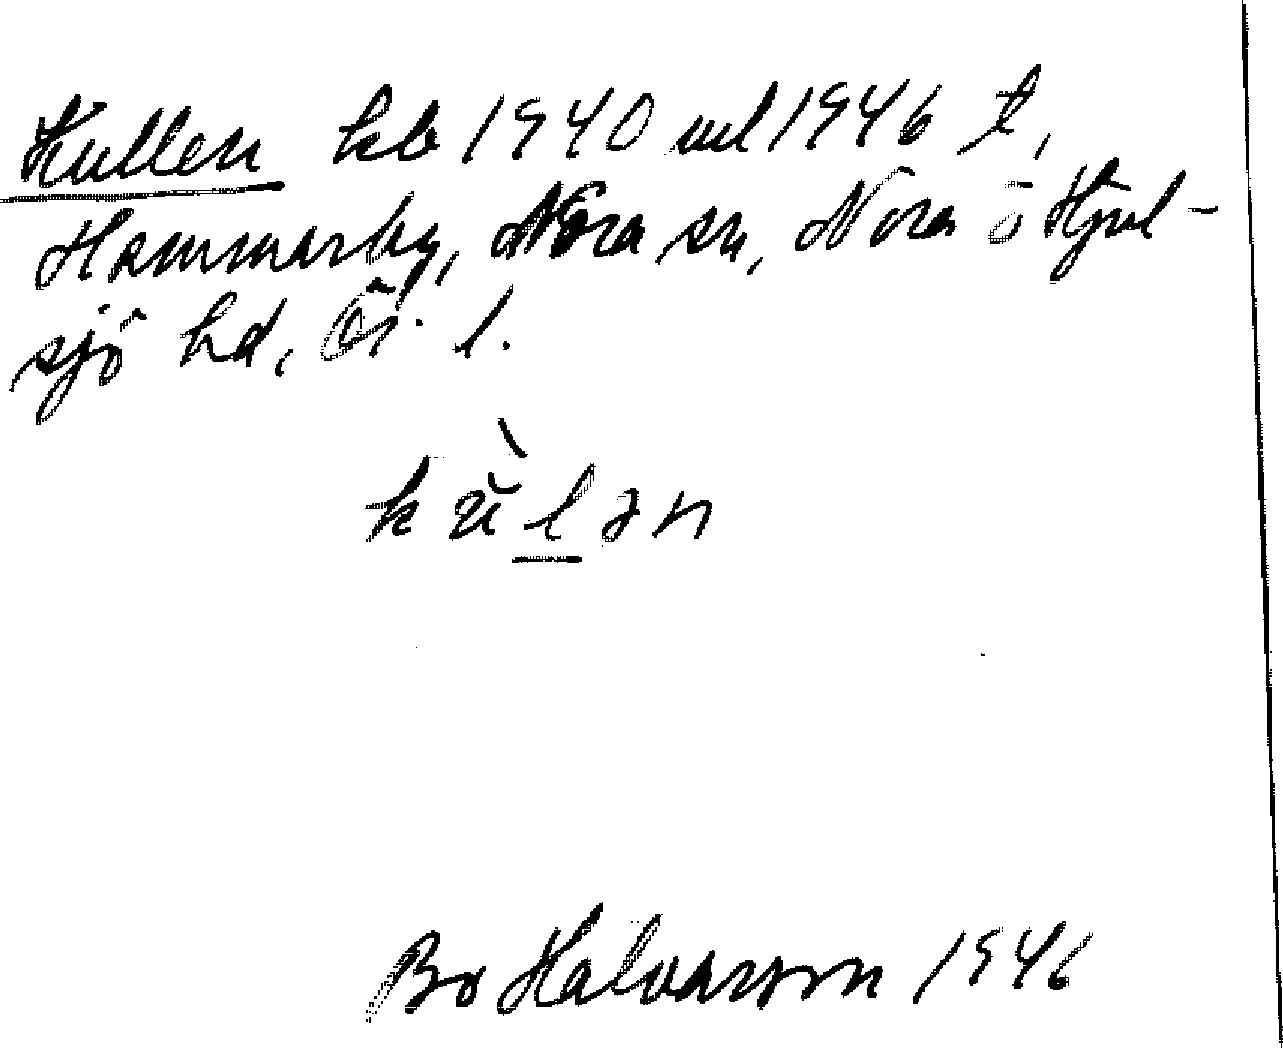 Kullen kb 1940 ml 1946 t,
Hammarby, Nora sn, Nora o Hjul-
sjö hd, Ör. l.
kùlən
Bo Halvarson 1946